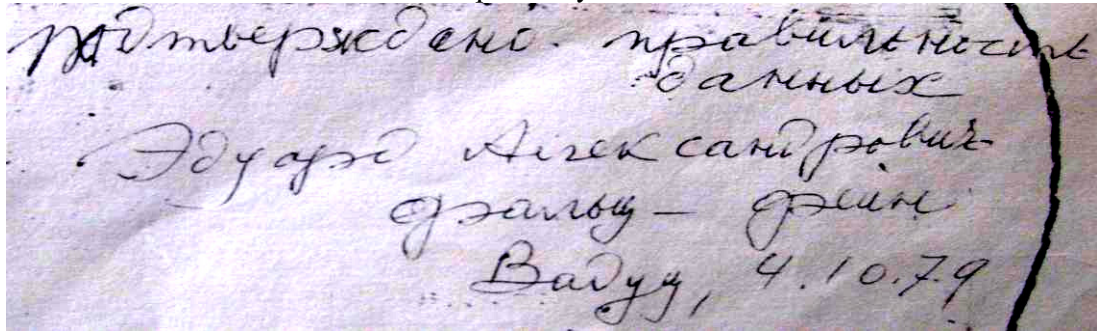 подтверждено. правильность
данных
Эдуард Александрович
фальц – фейн
Вадуц, 4.10.79